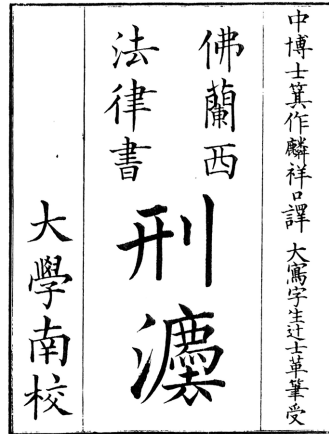 中博士箕作麟祥口譯 大寫字生辻士革筆受
佛蘭西
法律書
刑灋
大學南校